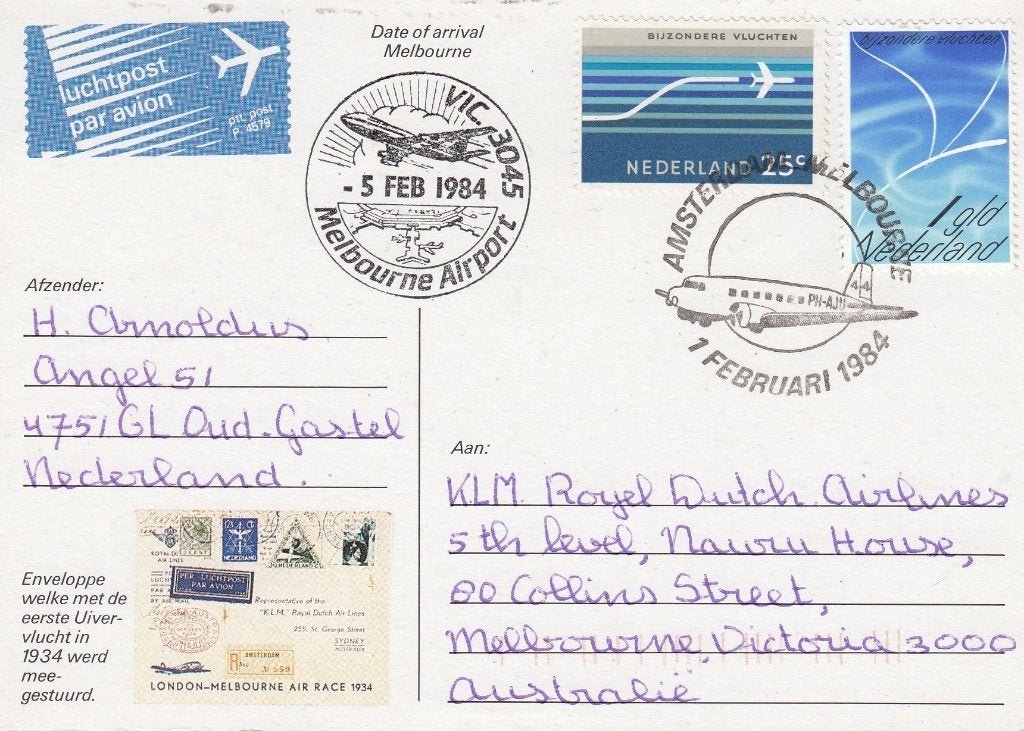 luchtpost
par avion
ptt post
P. 4579
Date of arrival
Melbourne
VIC. 3045
- 5 FEB 1984
Melbourne Airport
BIJZONDERE VLUCHTEN
NEDERLAND 25c
bijzondere vluchten
1 gld
Nederland
AMSTERDAM-MELBOURNE
44
PH-AJU
1 FEBRUARI 1984
Afzender:
H. Arnoldus
Angel 51
4751 GL Oud-Gastel
Nederland.
Aan:
KLM Royel Dutch Airlines
5th level, Nauru House,
80 Collins Street,
Melbourne, Victoria 3000
Australië
Enveloppe
welke met de
eerste Uiver-
vlucht in
1934 werd
mee-
gestuurd.
NEDERLAND
ROYAL DUTCH
AIR LINES
PER LUCHTPOST
PAR AVION
BY AIR MAIL
Representative of the
"K.L.M." Royal Dutch Air Lines
255, St. George Street
SYDNEY
AUSTRALIA
R
AMSTERDAM
LONDON-MELBOURNE AIR RACE 1934